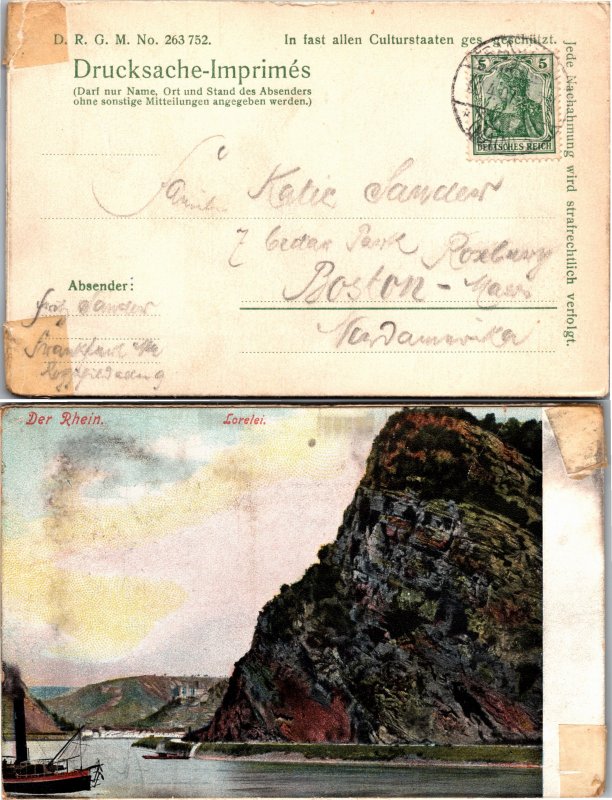 D. R. G. M. No. 263 752.
In fast allen Culturstaaten ges. geschützt.
Drucksache-Imprimés
(Darf nur Name, Ort und Stand des Absenders
ohne sonstige Mitteilungen angegeben werden.)
5 5
DEUTSCHES REICH
Jede Nachahmung wird strafrechtlich verfolgt.
Katie Sander
7 Cedar Park Roxbury
Boston - Mass
Nordamerika
Absender:
Fritz Sander
Frankfurt
Der Rhein.
Lorelei.